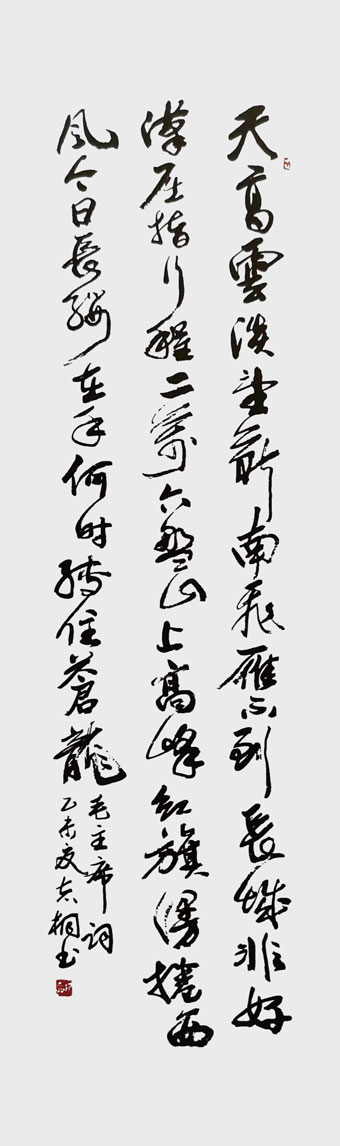 天高雲淡望斷南飛雁不到長城非好
漢屈指行程二萬六盤山上高峰紅旗漫捲西
風今日長纓在手何时縛住蒼龍
毛主席詞
乙未夏志桐书